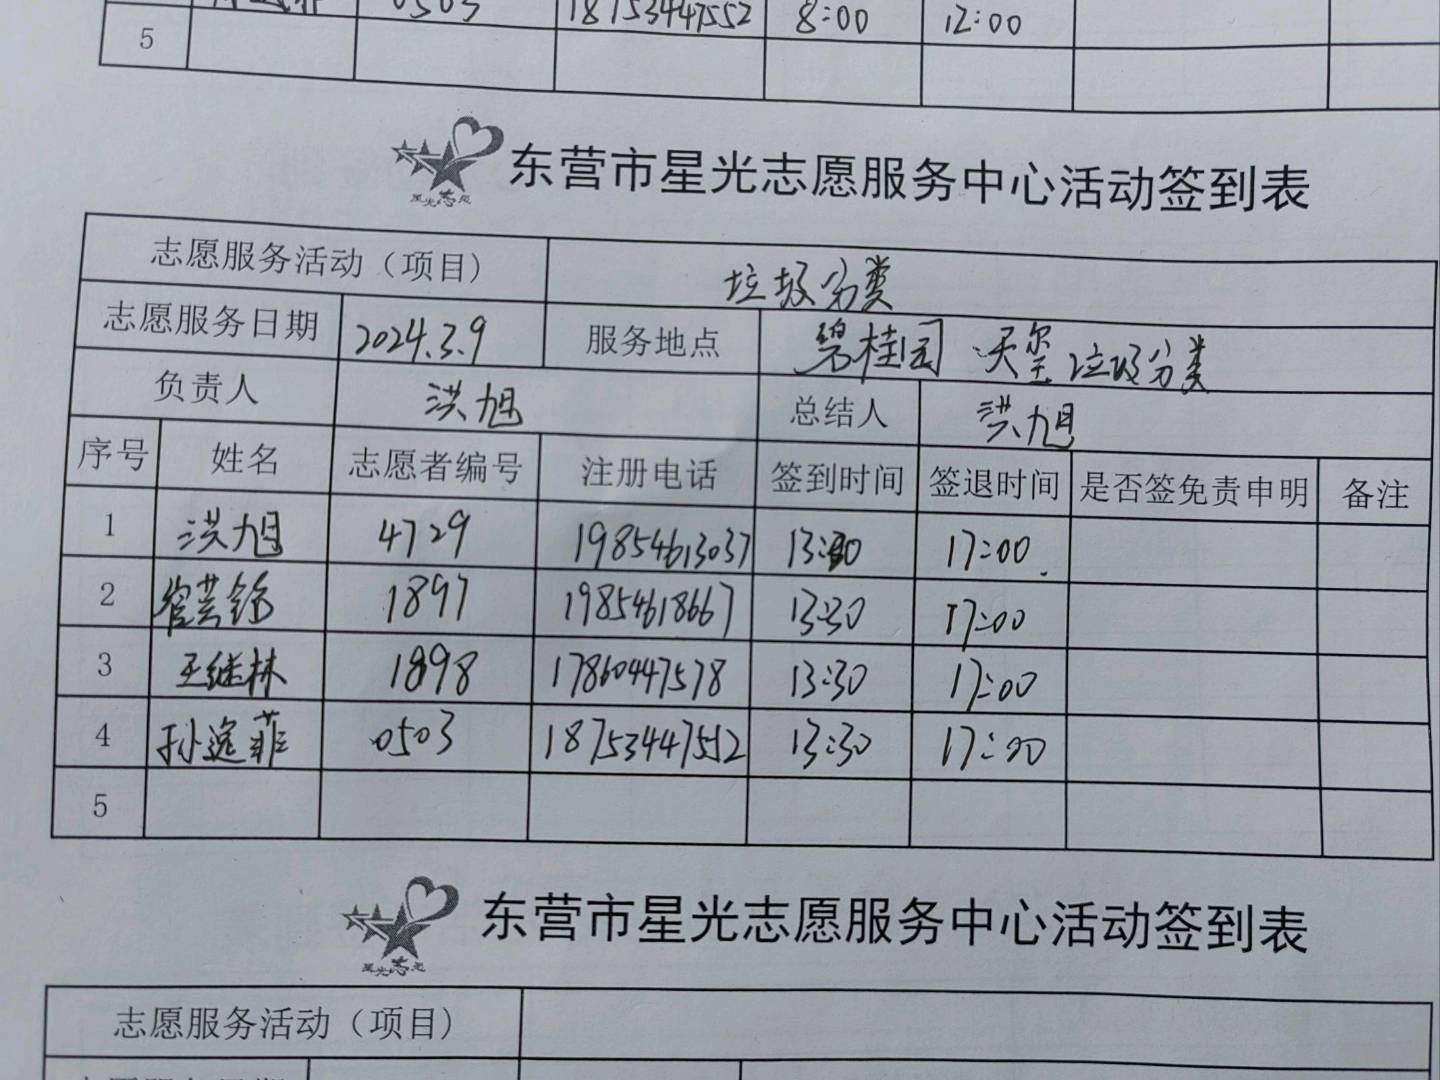 0503 18753447552 8:00 12:00
5
星光志愿
东营市星光志愿服务中心活动签到表
志愿服务活动（项目） 垃圾分类
志愿服务日期 2024.3.9 服务地点 碧桂园 天玺垃圾分类
负责人 洪旭 总结人 洪旭
序号 姓名 志愿者编号 注册电话 签到时间 签退时间 是否签免责申明 备注
1 洪旭 4729 19854613037 13:30 17:00
2 1897 19854618667 13:30 17:00
3 王继林 1898 17860447578 13:30 17:00
4 孙逸菲 0503 18753447552 13:30 17:00
5
星光志愿
东营市星光志愿服务中心活动签到表
志愿服务活动（项目）